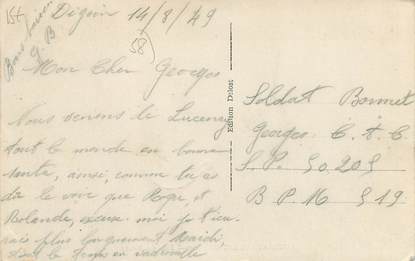 Digoin 14/8/49
58
Bons baisers
G B
Mon Cher Georges
Nous venons de Lucenay
tout le monde en bonne
santé, ainsi, comme tu as
dû le voir que Roger, et
Rolande, excuse moi je t'écri
rais plus longuement Mardi,
Edition Delost
Soldat Bonnet
Georges C. A. C
S. P. 50.205
B P M 519